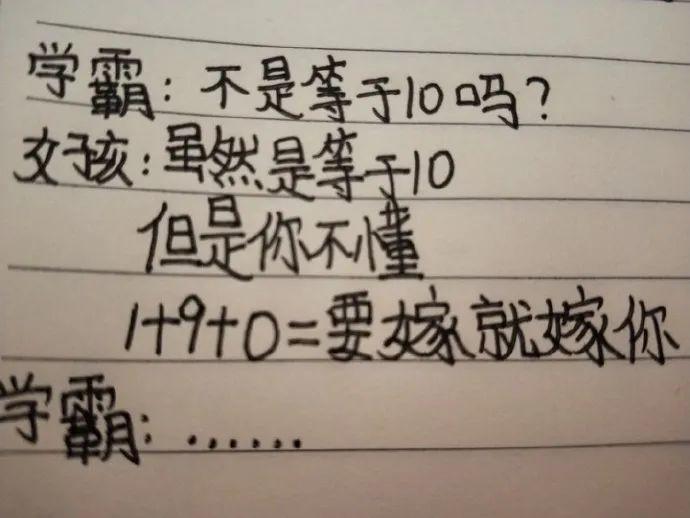 学霸：不是等于10吗？
女孩：虽然是等于10
但是你不懂
1+9+0=要嫁就嫁你
学霸：……